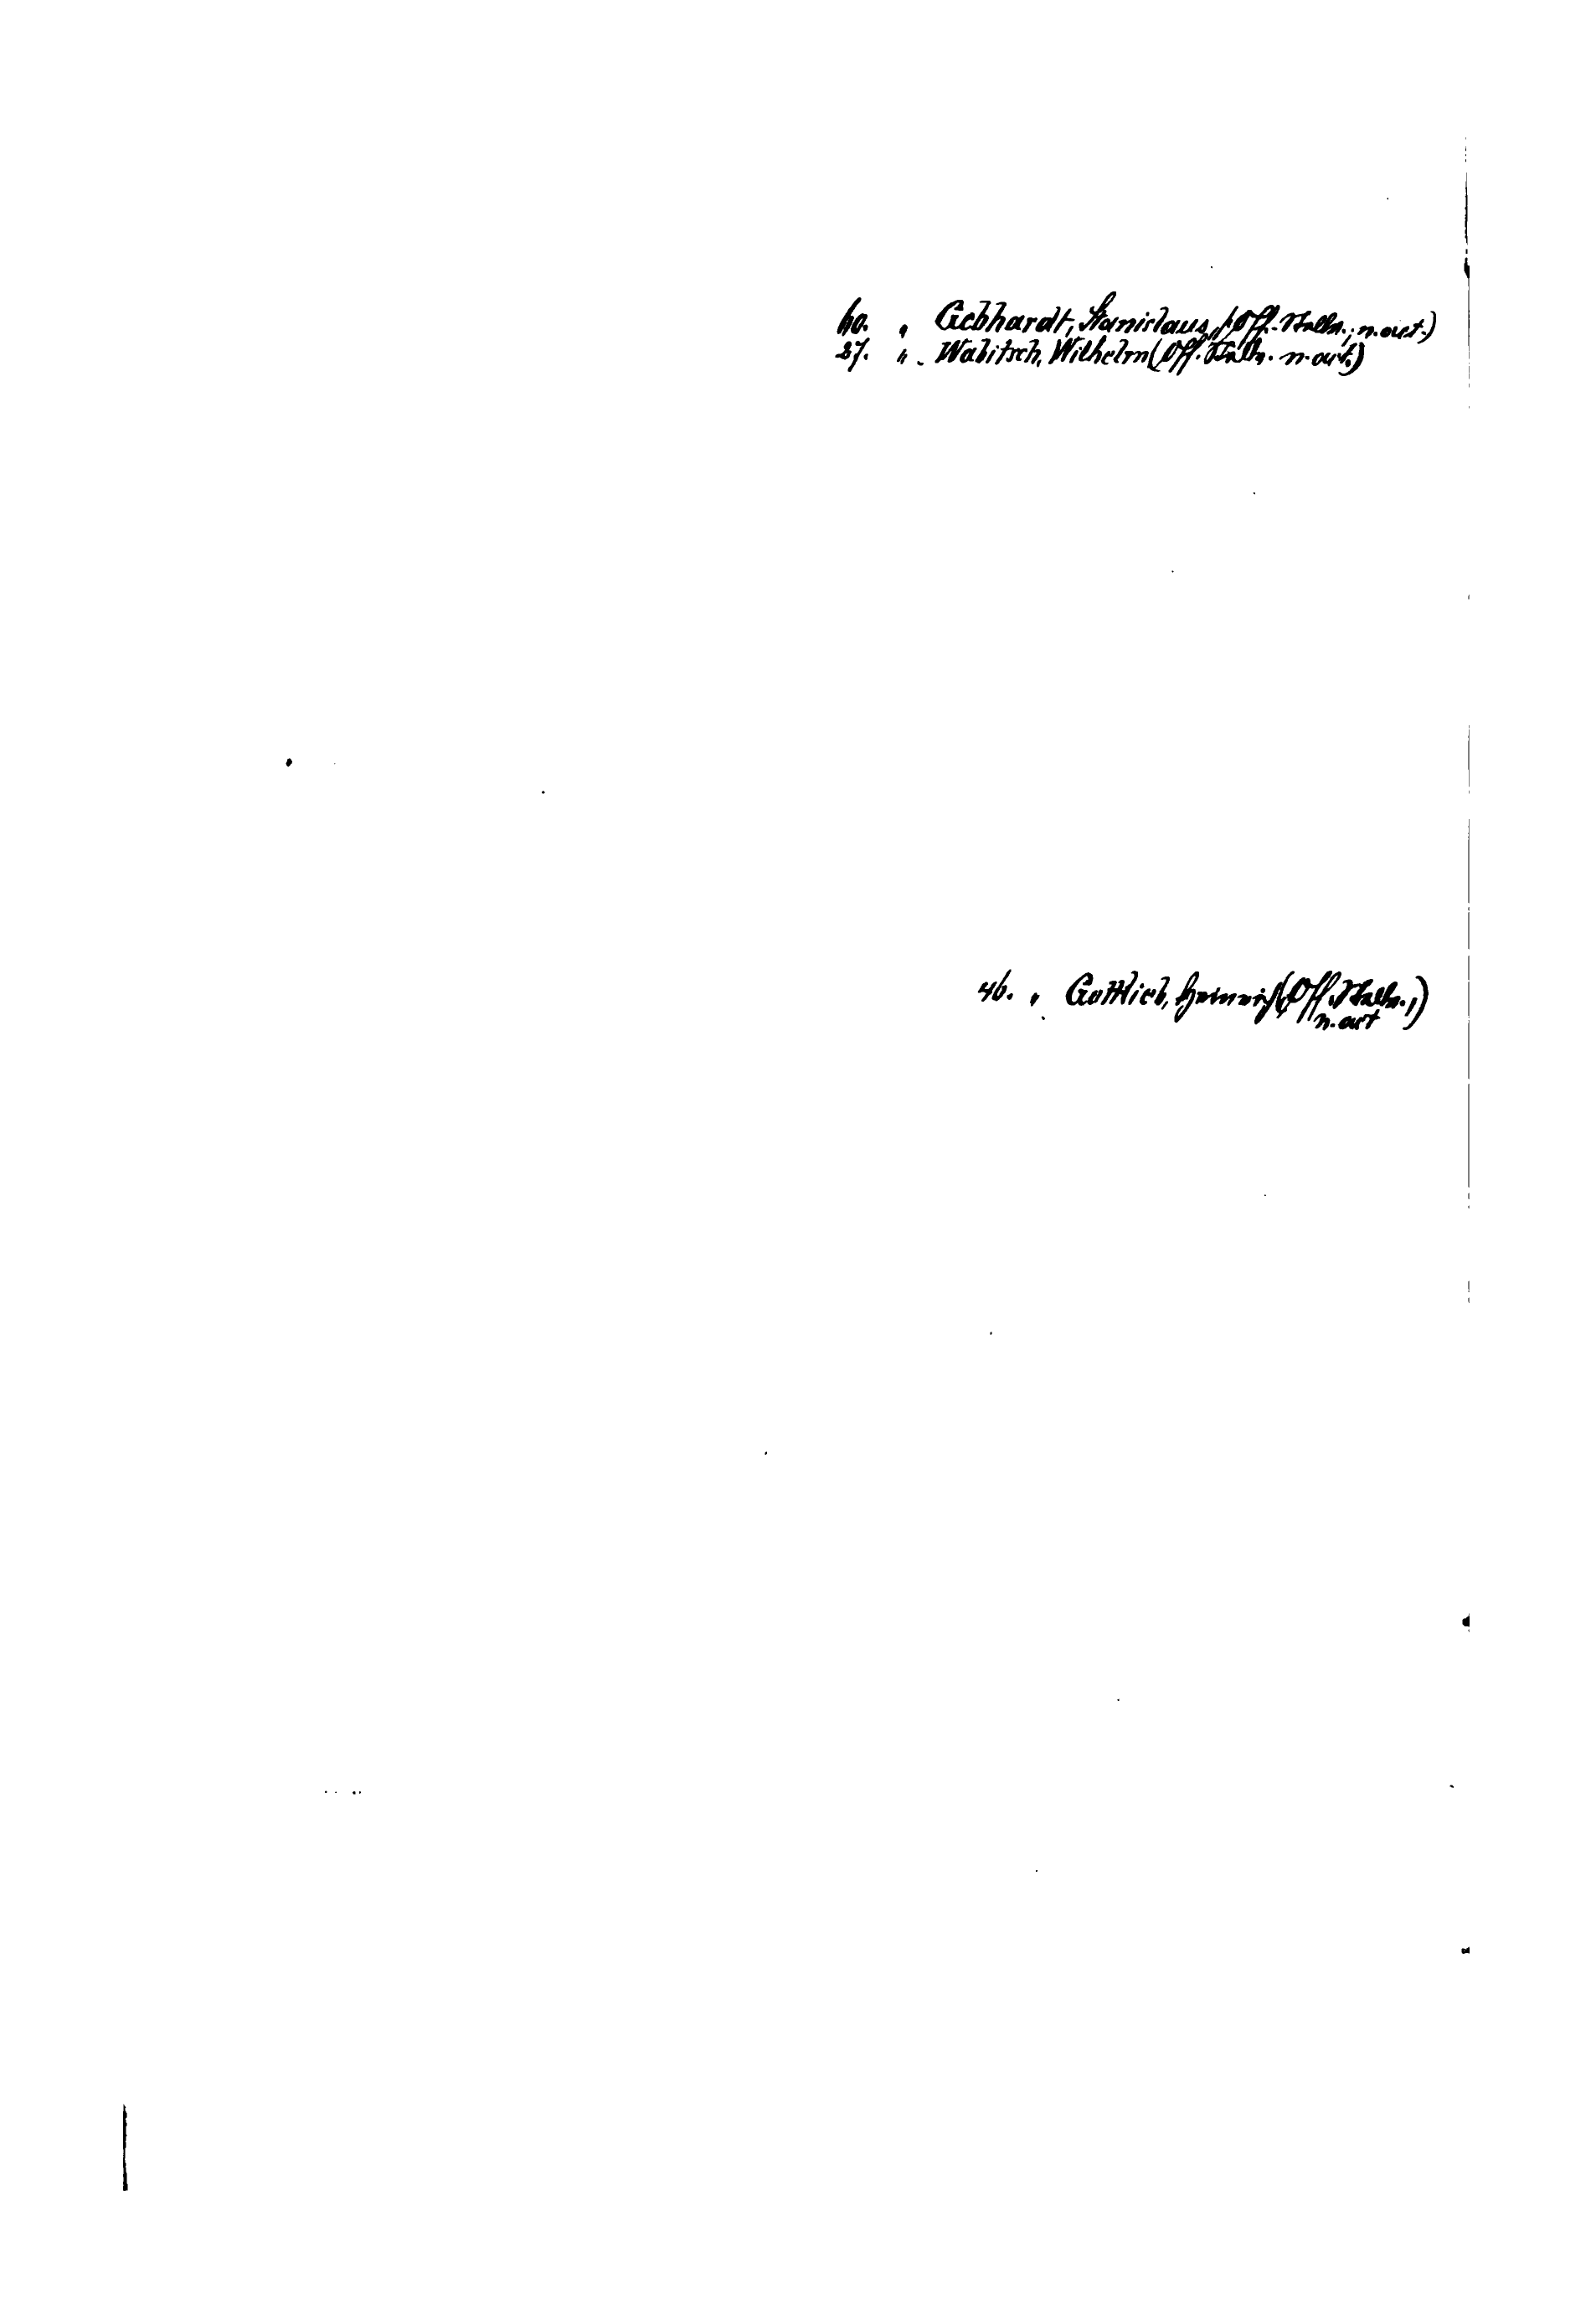 60. " Gebhardt, Stanislaus, (Off.-Stellv.; n. act.)
27. " Wabitsch, Wilhelm (Off. Stellv. n. act.)
46. " Gottlieb, Heinrich (Off. Stellv.,
n. act)